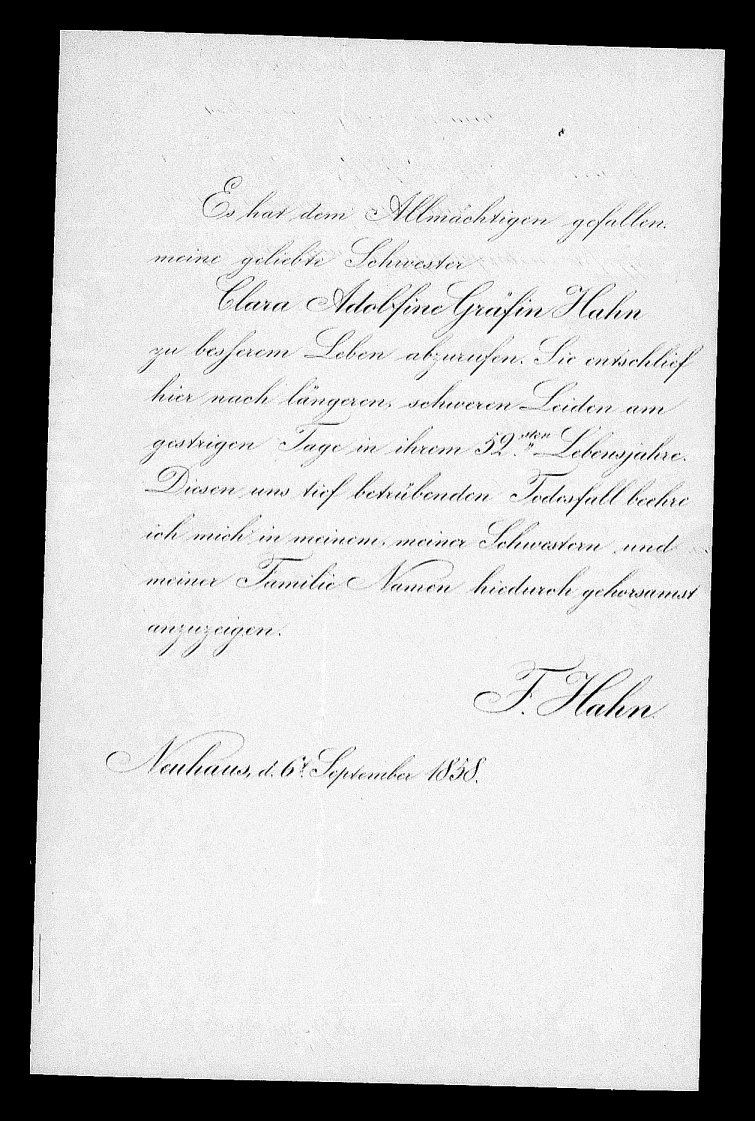 Es hat dem Allmächtigen gefallen,
meine geliebte Schwester
Clara Adolfine Gräfin Hahn
zu besserem Leben abzurufen. Sie entschlief
hier nach längeren, schweren Leiden am
gestrigen Tage in ihrem 52.sten Lebensjahre.
Diesen uns tief betrübenden Todesfall beehre
ich mich in meinem, meiner Schwestern und
meiner Familie Namen hiedurch gehorsamst
anzuzeigen.
F. Hahn.
Neuhaus, d. 6t. September 1858.